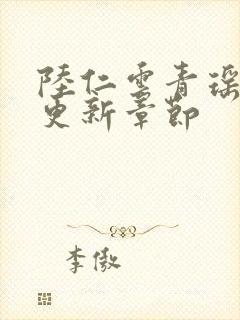 陸仁雲青瑶
更新章節
李傲